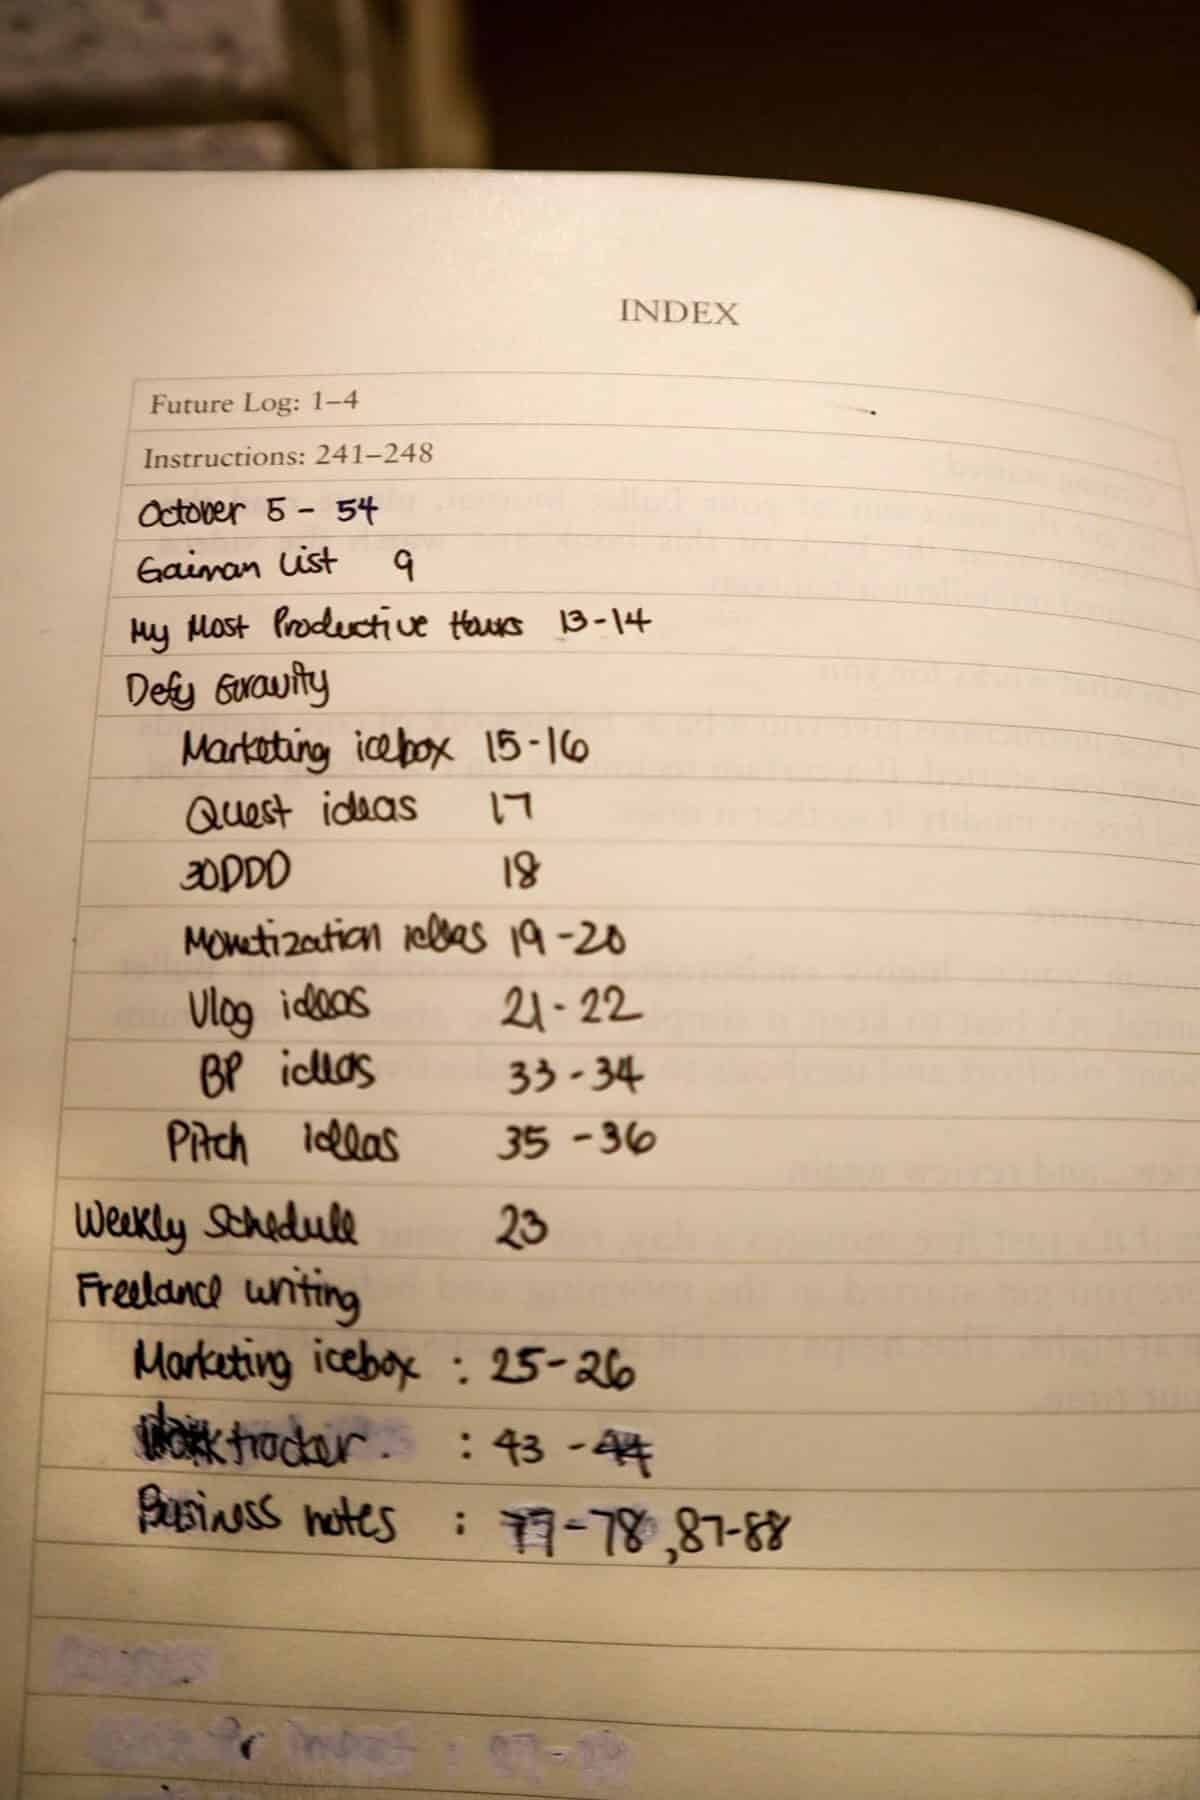 INDEX
Future Log: 1–4
Instructions: 241–248
October 5 - 54
Gaiman List 9
My Most Productive Hours 13-14
Defy Gravity
Marketing icebox 15-16
Quest ideas 17
30DDD 18
Monetization ideas 19-20
Vlog ideas 21-22
BP ideas 33-34
Pitch ideas 35-36
Weekly Schedule 23
Freelance writing
Marketing icebox : 25-26
tracker. : 43 - 44
Business notes : 77-78, 87-88